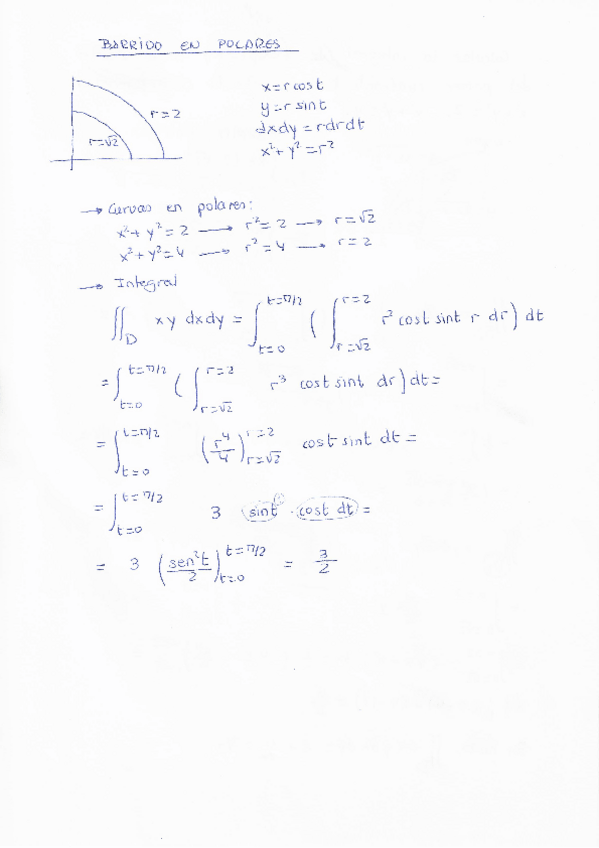 BARRIDO EN POLARES
x = r cost
y = r sint
dxdy = r dr dt
x² + y² = r²
r = 2
r = √2
→ Curvas en polares:
x² + y² = 2 → r² = 2 → r = √2
x² + y² = 4 → r² = 4 → r = 2
→ Integral
∬_D xy dxdy = ∫_{t=0}^{t=π/2} ( ∫_{r=√2}^{r=2} r² cost sint r dr ) dt
= ∫_{t=0}^{t=π/2} ( ∫_{r=√2}^{r=2} r³ cost sint dr ) dt =
= ∫_{t=0}^{t=π/2} ( r⁴/4 )_{r=√2}^{r=2} cost sint dt =
= ∫_{t=0}^{t=π/2} 3 sint · cost dt =
= 3 ( sen²t/2 )_{t=0}^{t=π/2} = 3/2